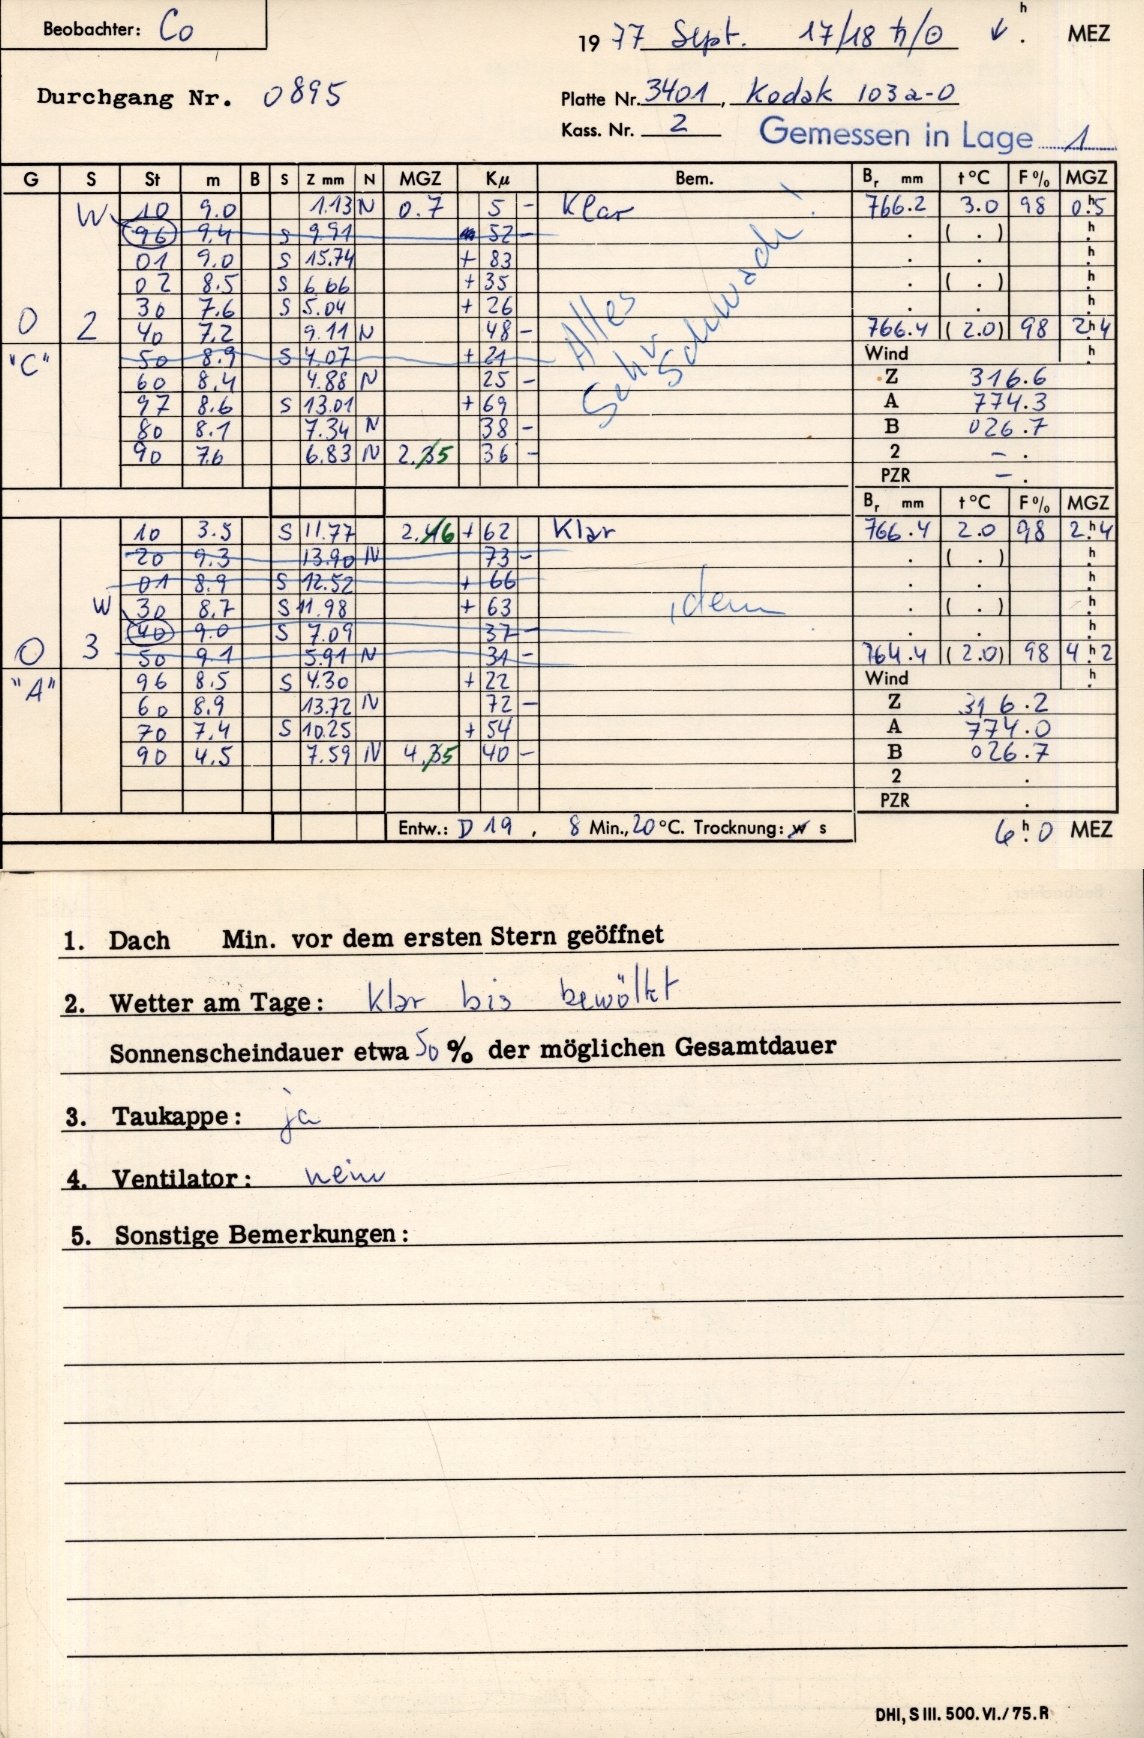 Beobachter: Co
19 77 Sept. 17/18 ♄/⊙ ↓ . h MEZ
Durchgang Nr. 0895
Platte Nr. 3401, Kodak 103a-O
Kass. Nr. 2 Gemessen in Lage 1
G S St m B S Z mm N MGZ Kμ Bem. Br mm t °C F % MGZ
W 10 9.0 1.13 N 0.7 5 - Klar 766.2 3.0 98 0.h5
96 9.4 S 9.91 52 - . ( . ) h.
01 9.0 S 15.74 + 83 . . h.
02 8.5 S 6.66 + 35 . ( . ) h.
30 7.6 S 5.04 + 26 . . h.
0 2 40 7.2 9.11 N 48 - 766.4 (2.0) 98 2.h4
"C" 50 8.9 S 4.07 + 21 Wind h.
60 8.4 4.88 N 25 - Z 316.6
97 8.6 S 13.01 + 69 A 774.3
80 8.1 7.34 N 38 - B 026.7
90 7.6 6.83 N 2.35 36 - 2 - .
PZR - .
Alles
Sehr
Schwach!
Br mm t °C F % MGZ
10 3.5 S 11.77 2.46 + 62 Klar 766.4 2.0 98 2.h4
20 9.3 13.90 N 73 - . ( . ) h.
01 8.9 S 12.52 + 66 . . h.
W 30 8.7 S 11.98 + 63 , dem . ( . ) h.
40 9.0 S 7.09 37 - . . h.
0 3 50 9.1 5.91 N 31 - 764.4 (2.0) 98 4.h2
"A" 96 8.5 S 4.30 + 22 Wind h.
60 8.9 13.72 N 72 - Z 316.2
70 7.4 S 10.25 + 54 A 774.0
90 4.5 7.59 N 4.35 40 - B 026.7
2 .
PZR .
Entw.: D 19 , 8 Min., 20 °C. Trocknung: w s 6.h0 MEZ
1. Dach Min. vor dem ersten Stern geöffnet
2. Wetter am Tage: Klar bis bewölkt
Sonnenscheindauer etwa 50 % der möglichen Gesamtdauer
3. Taukappe: ja
4. Ventilator: nein
5. Sonstige Bemerkungen:
DHI, S III. 500. VI. / 75. R